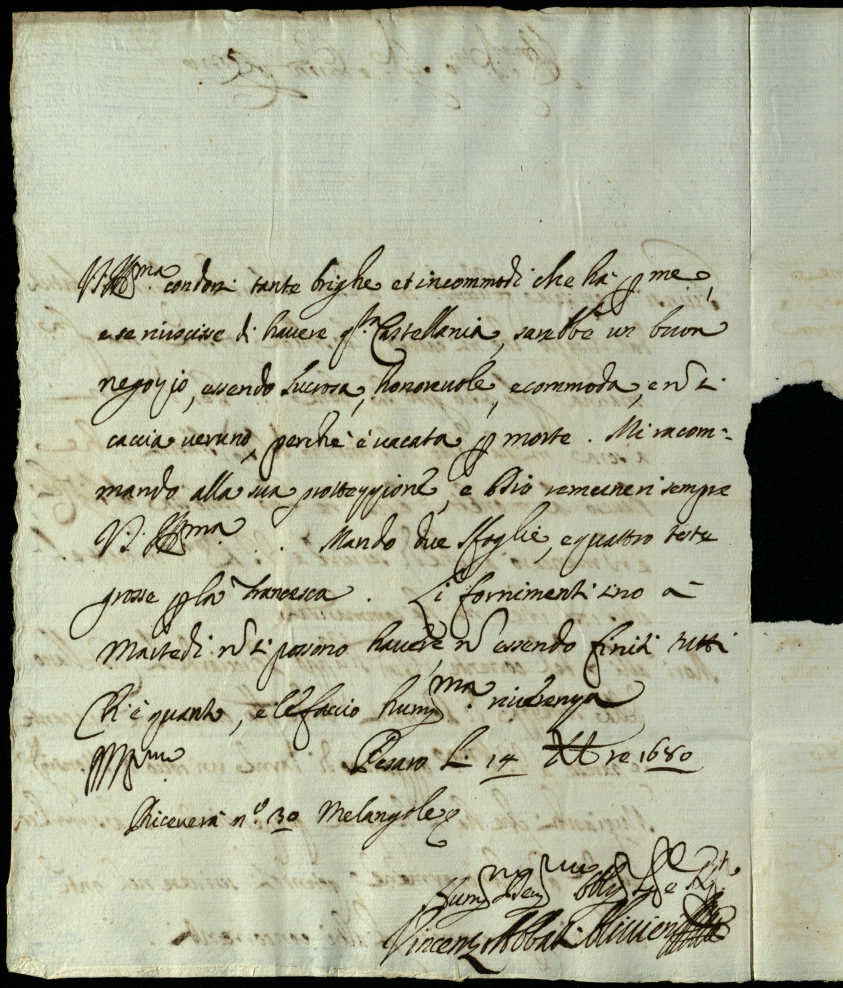 V. S. Ill.ma condoni tante brighe et incommodi che ha p me,
e se riuscisse di havere q.sta Castellania, sarebbe un buon
negozio, essendo lucrosa, honorevole, e commoda, e nō si
caccia veruno, perchè è vacata p morte. Mi racom-
mando alla sua protezzione, e Dio remuneri sempre
V. S. Ill.ma. Mando due sfoglie, e quattro teste
grosse p la Francesca. Li fornimenti sino à
Martedi nō si possono havere, nō essendo finiti tutti
Ch'è quanto, e le faccio hum.ma riverenza
Pesaro li 14 Xbre 1680
Riceverà n.o 30 Melangole
Hum.mo Dev.mo Obl.mo
Vincenzo Abbati Olivieri